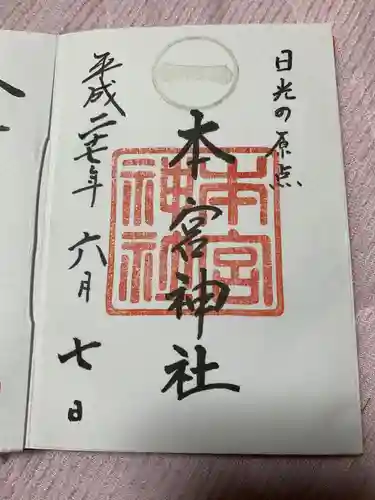 日光の原点
本宮神社
本宮神社
平成二十七年 六月 七日